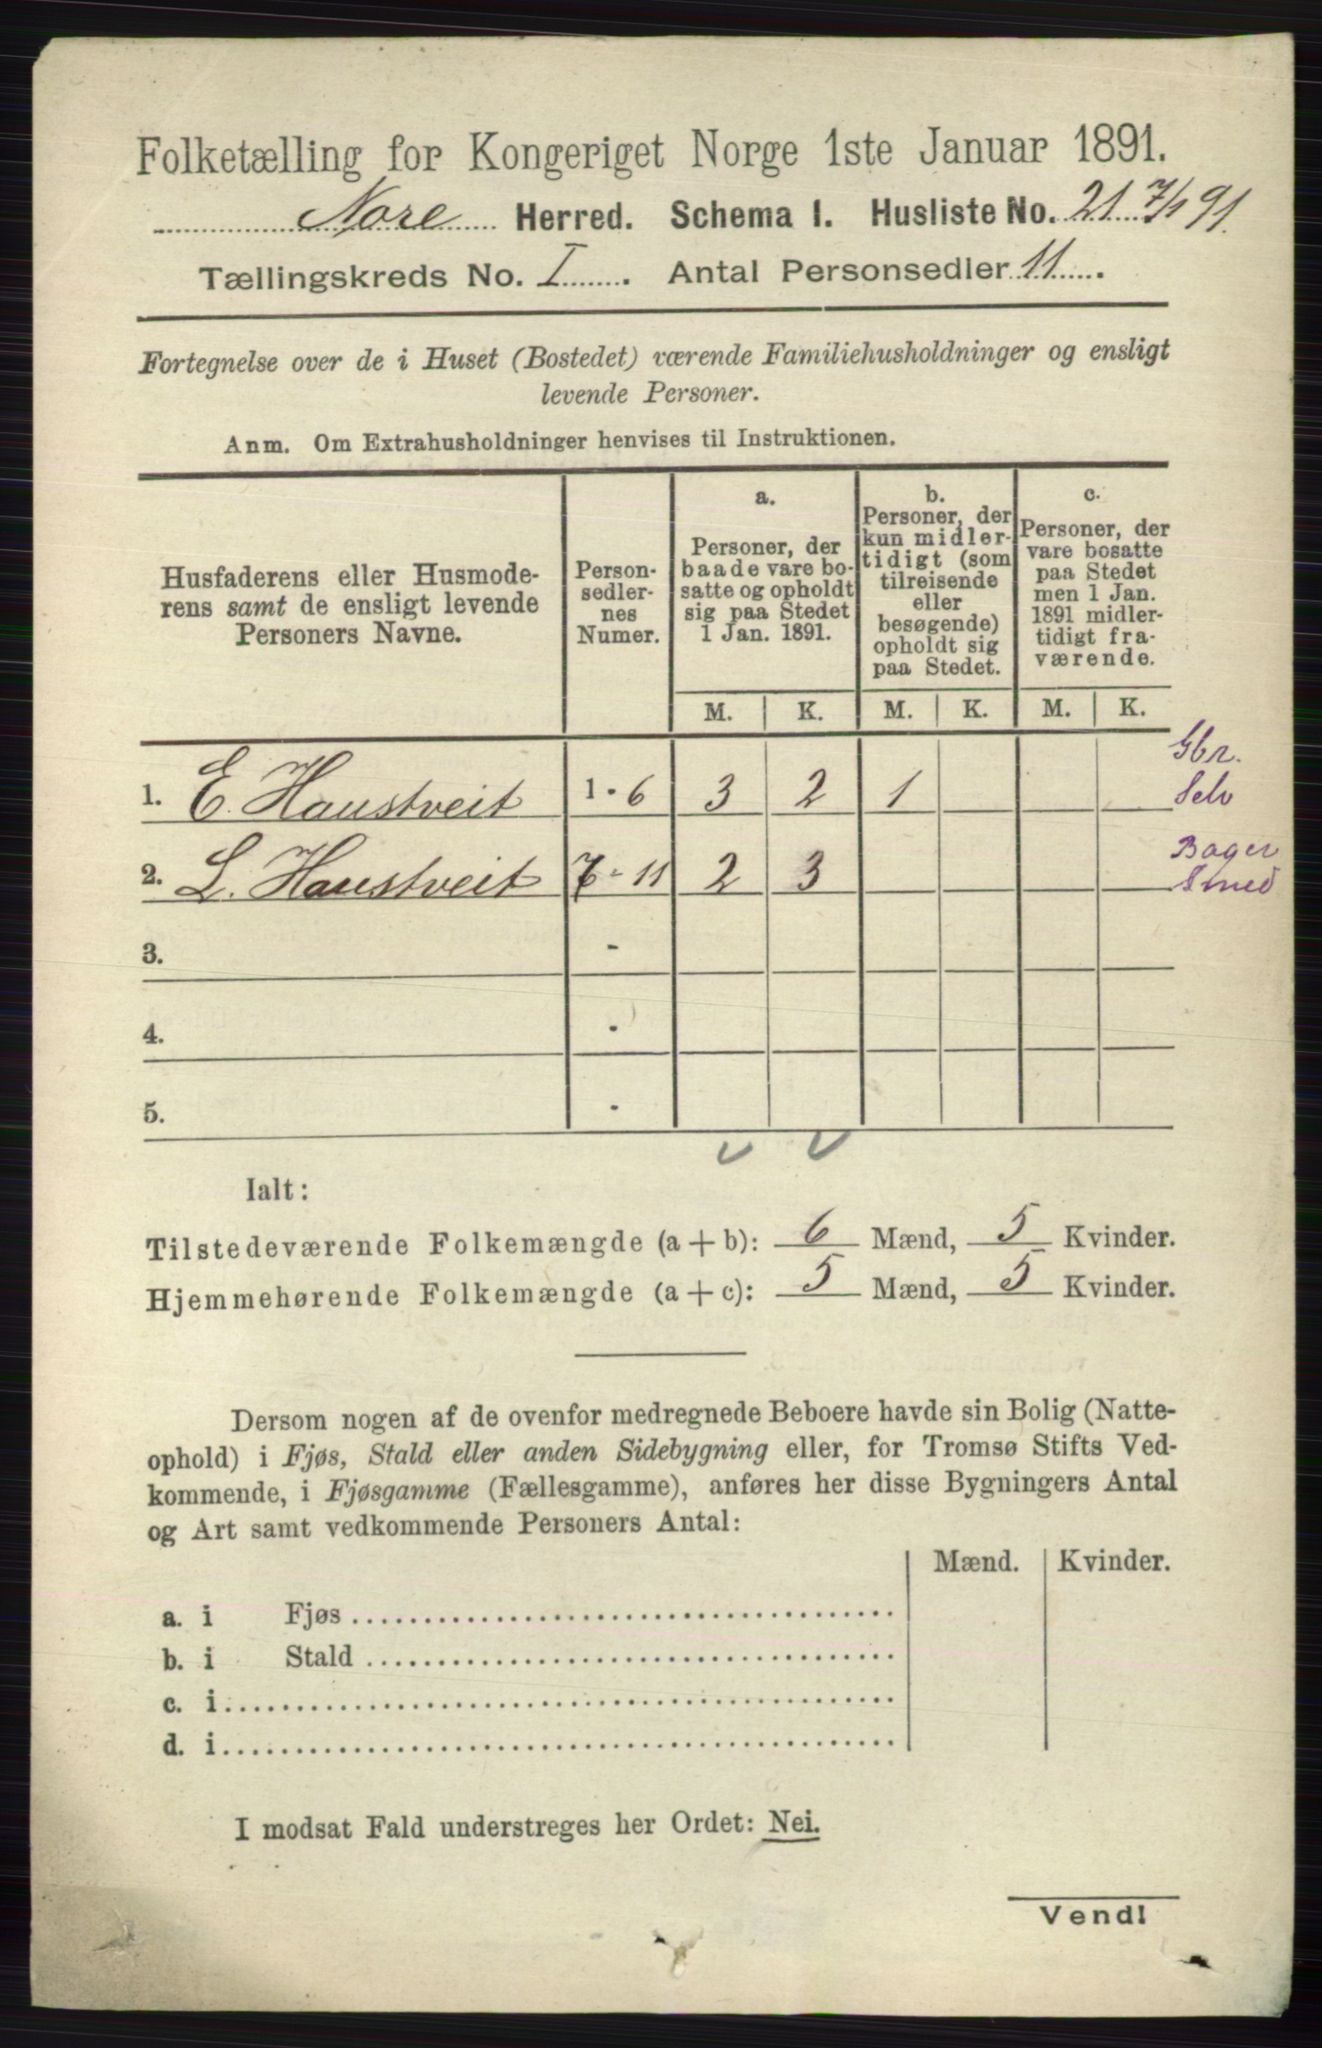 Folketælling for Kongeriget Norge 1ste Januar 1891.
Nore Herred. Schema I. Husliste No. 21 7/1 91.
Tællingskreds No. I. Antal Personsedler 11.
Fortegnelse over de i Huset (Bostedet) værende Familiehusholdninger og ensligt
levende Personer.
Anm. Om Extrahusholdninger henvises til Instruktionen.
Husfaderens eller Husmode-
rens samt de ensligt levende
Personers Navne.
Person-
sedler-
nes
Numer.
a.
Personer, der
baade vare bo-
satte og opholdt
sig paa Stedet
1 Jan. 1891.
b.
Personer, der
kun midler-
tidigt (som
tilreisende
eller
besøgende)
opholdt sig
paa Stedet.
c.
Personer, der
vare bosatte
paa Stedet
men 1 Jan.
1891 midler-
tidigt fra-
værende.
M. K. M. K. M. K.
1. E. Haustveit 1 - 6 3 2 1 Gbr. Selv
2. L. Haustveit 7 - 11 2 3 Bager Smed
3. -
4. -
5. -
Ialt:
Tilstedeværende Folkemængde (a + b): 6 Mænd, 5 Kvinder.
Hjemmehørende Folkemængde (a + c): 5 Mænd, 5 Kvinder.
Dersom nogen af de ovenfor medregnede Beboere havde sin Bolig (Natte-
ophold) i Fjøs, Stald eller anden Sidebygning eller, for Tromsø Stifts Ved-
kommende, i Fjøsgamme (Fællesgamme), anføres her disse Bygningers Antal
og Art samt vedkommende Personers Antal:
Mænd. Kvinder.
a. i Fjøs
b. i Stald
c. i
d. i
I modsat Fald understreges her Ordet: Nei.
Vend!